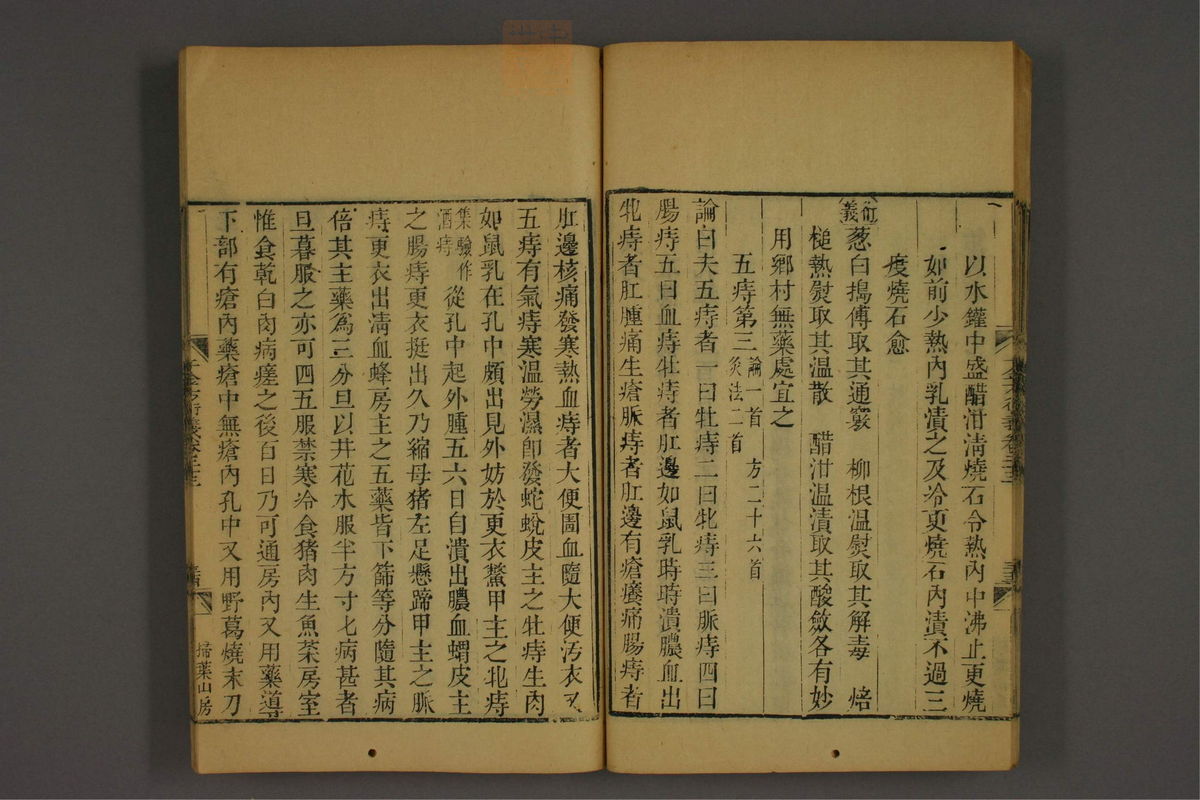 以水鑵中盛醋泔淸燒石令熱內中沸止更燒
如前少熱內乳漬之及冷更燒石內漬不過三
度燒石愈
衍義
葱白搗傅取其通竅　柳根溫熨取其解毒　焙
槌熱熨取其溫散　醋泔溫漬取其酸斂各有妙
用鄉村無藥處宜之
五痔第三
論一首　方二十六首
灸法二首
論曰夫五痔者一曰牡痔二曰牝痔三曰脈痔四曰
腸痔五曰血痔牡痔者肛邊如鼠乳時時潰膿血出
牝痔者肛腫痛生瘡脈痔者肛邊有瘡癢痛腸痔者
肛邊核痛發寒熱血痔者大便圊血隨大便汚衣又
五痔有氣痔寒溫勞濕卽發蛇蛻皮主之牡痔生肉
如鼠乳在孔中頗出見外妨於更衣鱉甲主之牝痔
集驗作
酒痔
從孔中起外腫五六日自潰出膿血蝟皮主
之腸痔更衣挺出久乃縮母猪左足懸蹄甲主之脈
痔更衣出淸血蜂房主之五藥皆下篩等分隨其病
倍其主藥爲三分旦以井花水服半方寸匕病甚者
旦暮服之亦可四五服禁寒冷食猪肉生魚菜房室
惟食乾白肉病瘥之後百日乃可通房內又用藥導
下部有瘡內藥瘡中無瘡內孔中又用野葛燒末刀
掃葉山房